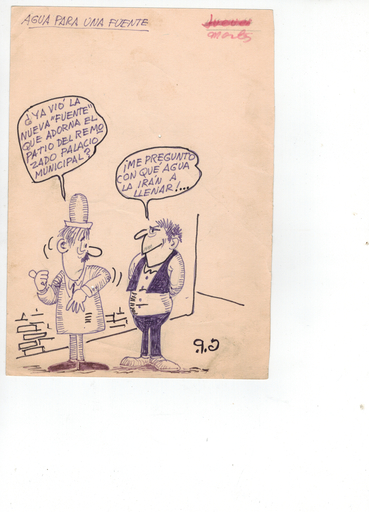 AGUA PARA UNA FUENTE
Jueves
martes
¿YA VIÓ LA
NUEVA "FUENTE"
QUE ADORNA EL
PATIO DEL REMO
ZADO PALACIO
MUNICIPAL?
¡ME PREGUNTO
CON QUE AGUA
LA IRÁN A
LLENAR!...